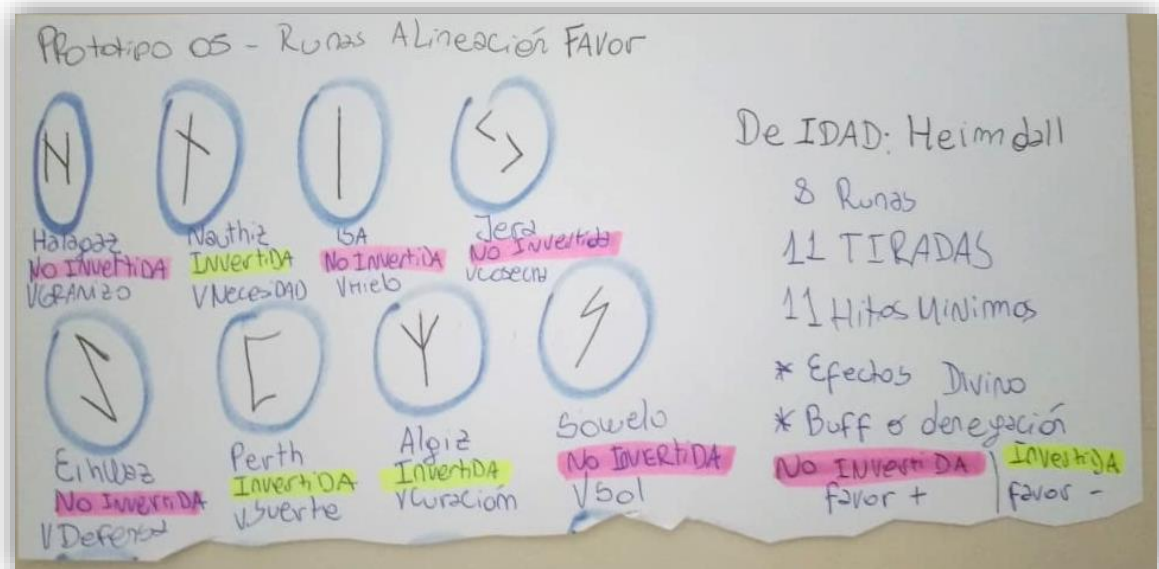 PRototipo 05 - Runas ALineación FAVor
Halagaz
No InvertiDA
VGRANIZO
Nauthiz
InvertiDA
VNecesDAD
ISA
No InvertiDA
VHielo
Jera
No Invertida
VCosecha
Eihwaz
No InvertiDA
VDefensa
Perth
InvertiDA
V.Suerte
Algiz
InvertiDA
VCuraciom
Sowelo
No INVERTiDA
VSol
De IDAD: Heimdall
8 Runas
11 TIRADAS
11 Hitos MiNimos
* Efectos Divino
* Buff o denegación
No InvertiDA | InvertiDA
favor + | favor -